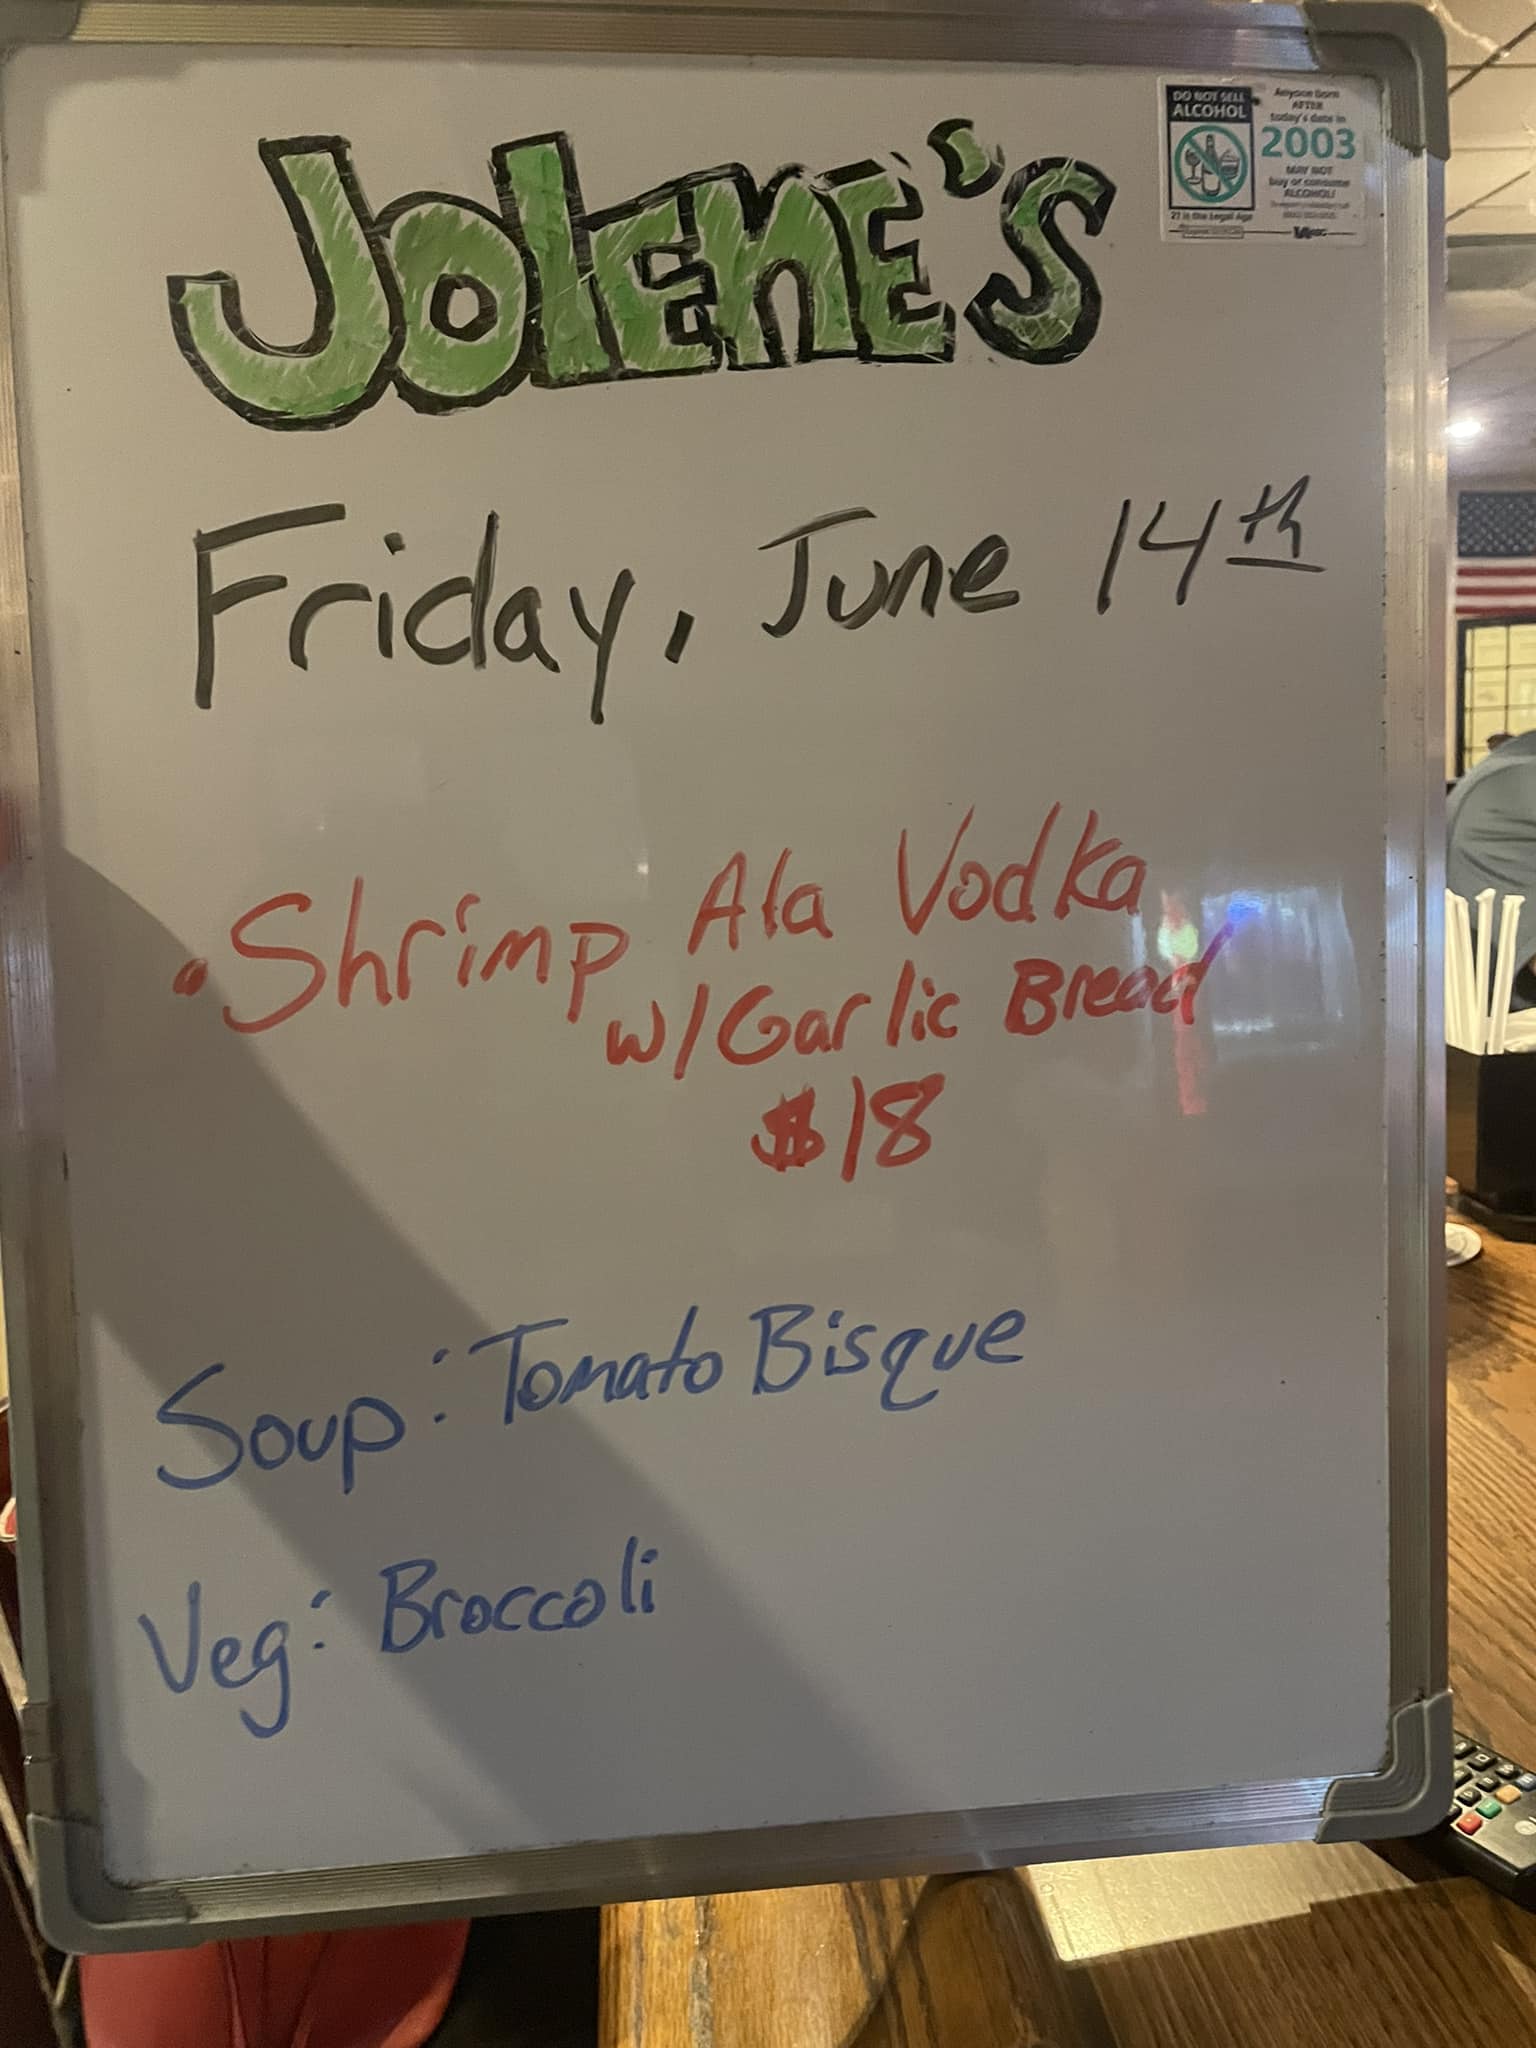 JOlENE'S
DO NOT SELL
ALCOHOL
21 is the Legal Age
Anyone born
AFTER
today's date in
2003
MAY NOT
buy or consume
ALCOHOL!
Friday, June 14th
• Shrimp Ala Vodka
w/Garlic Bread
$18
Soup: Tomato Bisque
Veg: Broccoli